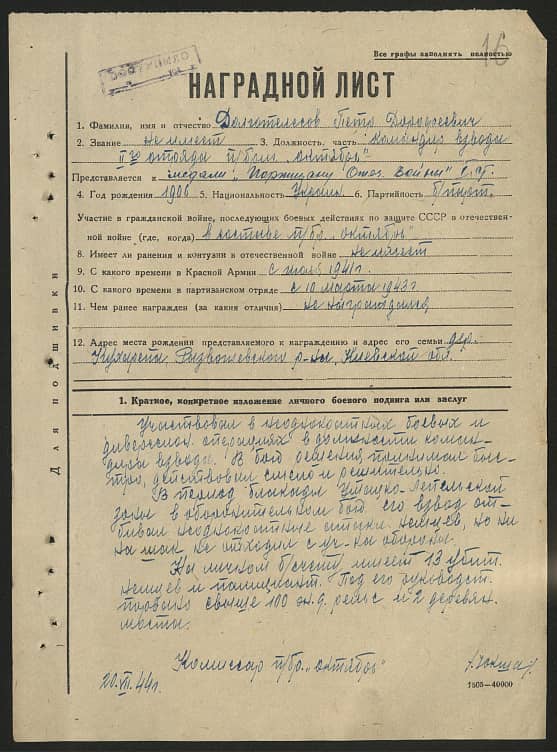 16
Все графы заполнять полностью
НАГРАДНОЙ ЛИСТ
1. Фамилия, имя и отчество Долготелесов Петр Дорофеевич
2. Звание не имеет 3. Должность, часть командир взвода
отряда п/бриг. „Октябрь"
Представляется к медали „Партизану Отеч. Войны"
4. Год рождения 1906 5. Национальность Украин. 6. Партийность б/парт.
Участие в гражданской войне, последующих боевых действиях по защите СССР в отечествен-
ной войне (где, когда) в составе п/бр. „Октябрь"
8. Имеет ли ранения и контузии в отечественной войне не имеет
9. С какого времени в Красной Армии с июля 1941 г.
10. С какого времени в партизанском отряде с 10 марта 1943 г.
11. Чем ранее награжден (за какия отличия) не награждался
12. Адрес места рождения представляемого к награждению и адрес его семьи дер.
р-на, Киевской обл.
Для подшивки
1. Краткое, конкретное изложение личного боевого подвига или заслуг
Участвовал в неоднократных боевых и
диверсион. операциях в должности коман-
дира взвода. В бою решения принимал быс-
тро, действовал смело и решительно.
В период блокады Ушачско-Лепельской
зоны в оборонительном бою его взвод от-
бивал неоднократные атаки немцев, но ни
на шаг не отходил с уч-ка обороны.
На личном б/счету имеет 13 убит.
немцев и полицейск. Под его руководст.
подорвано свыше 100 ж.д. рельс и 2 деревян.
моста.
Комиссар п/бр. „Октябрь"
20.VII.44 г.
1605—40000